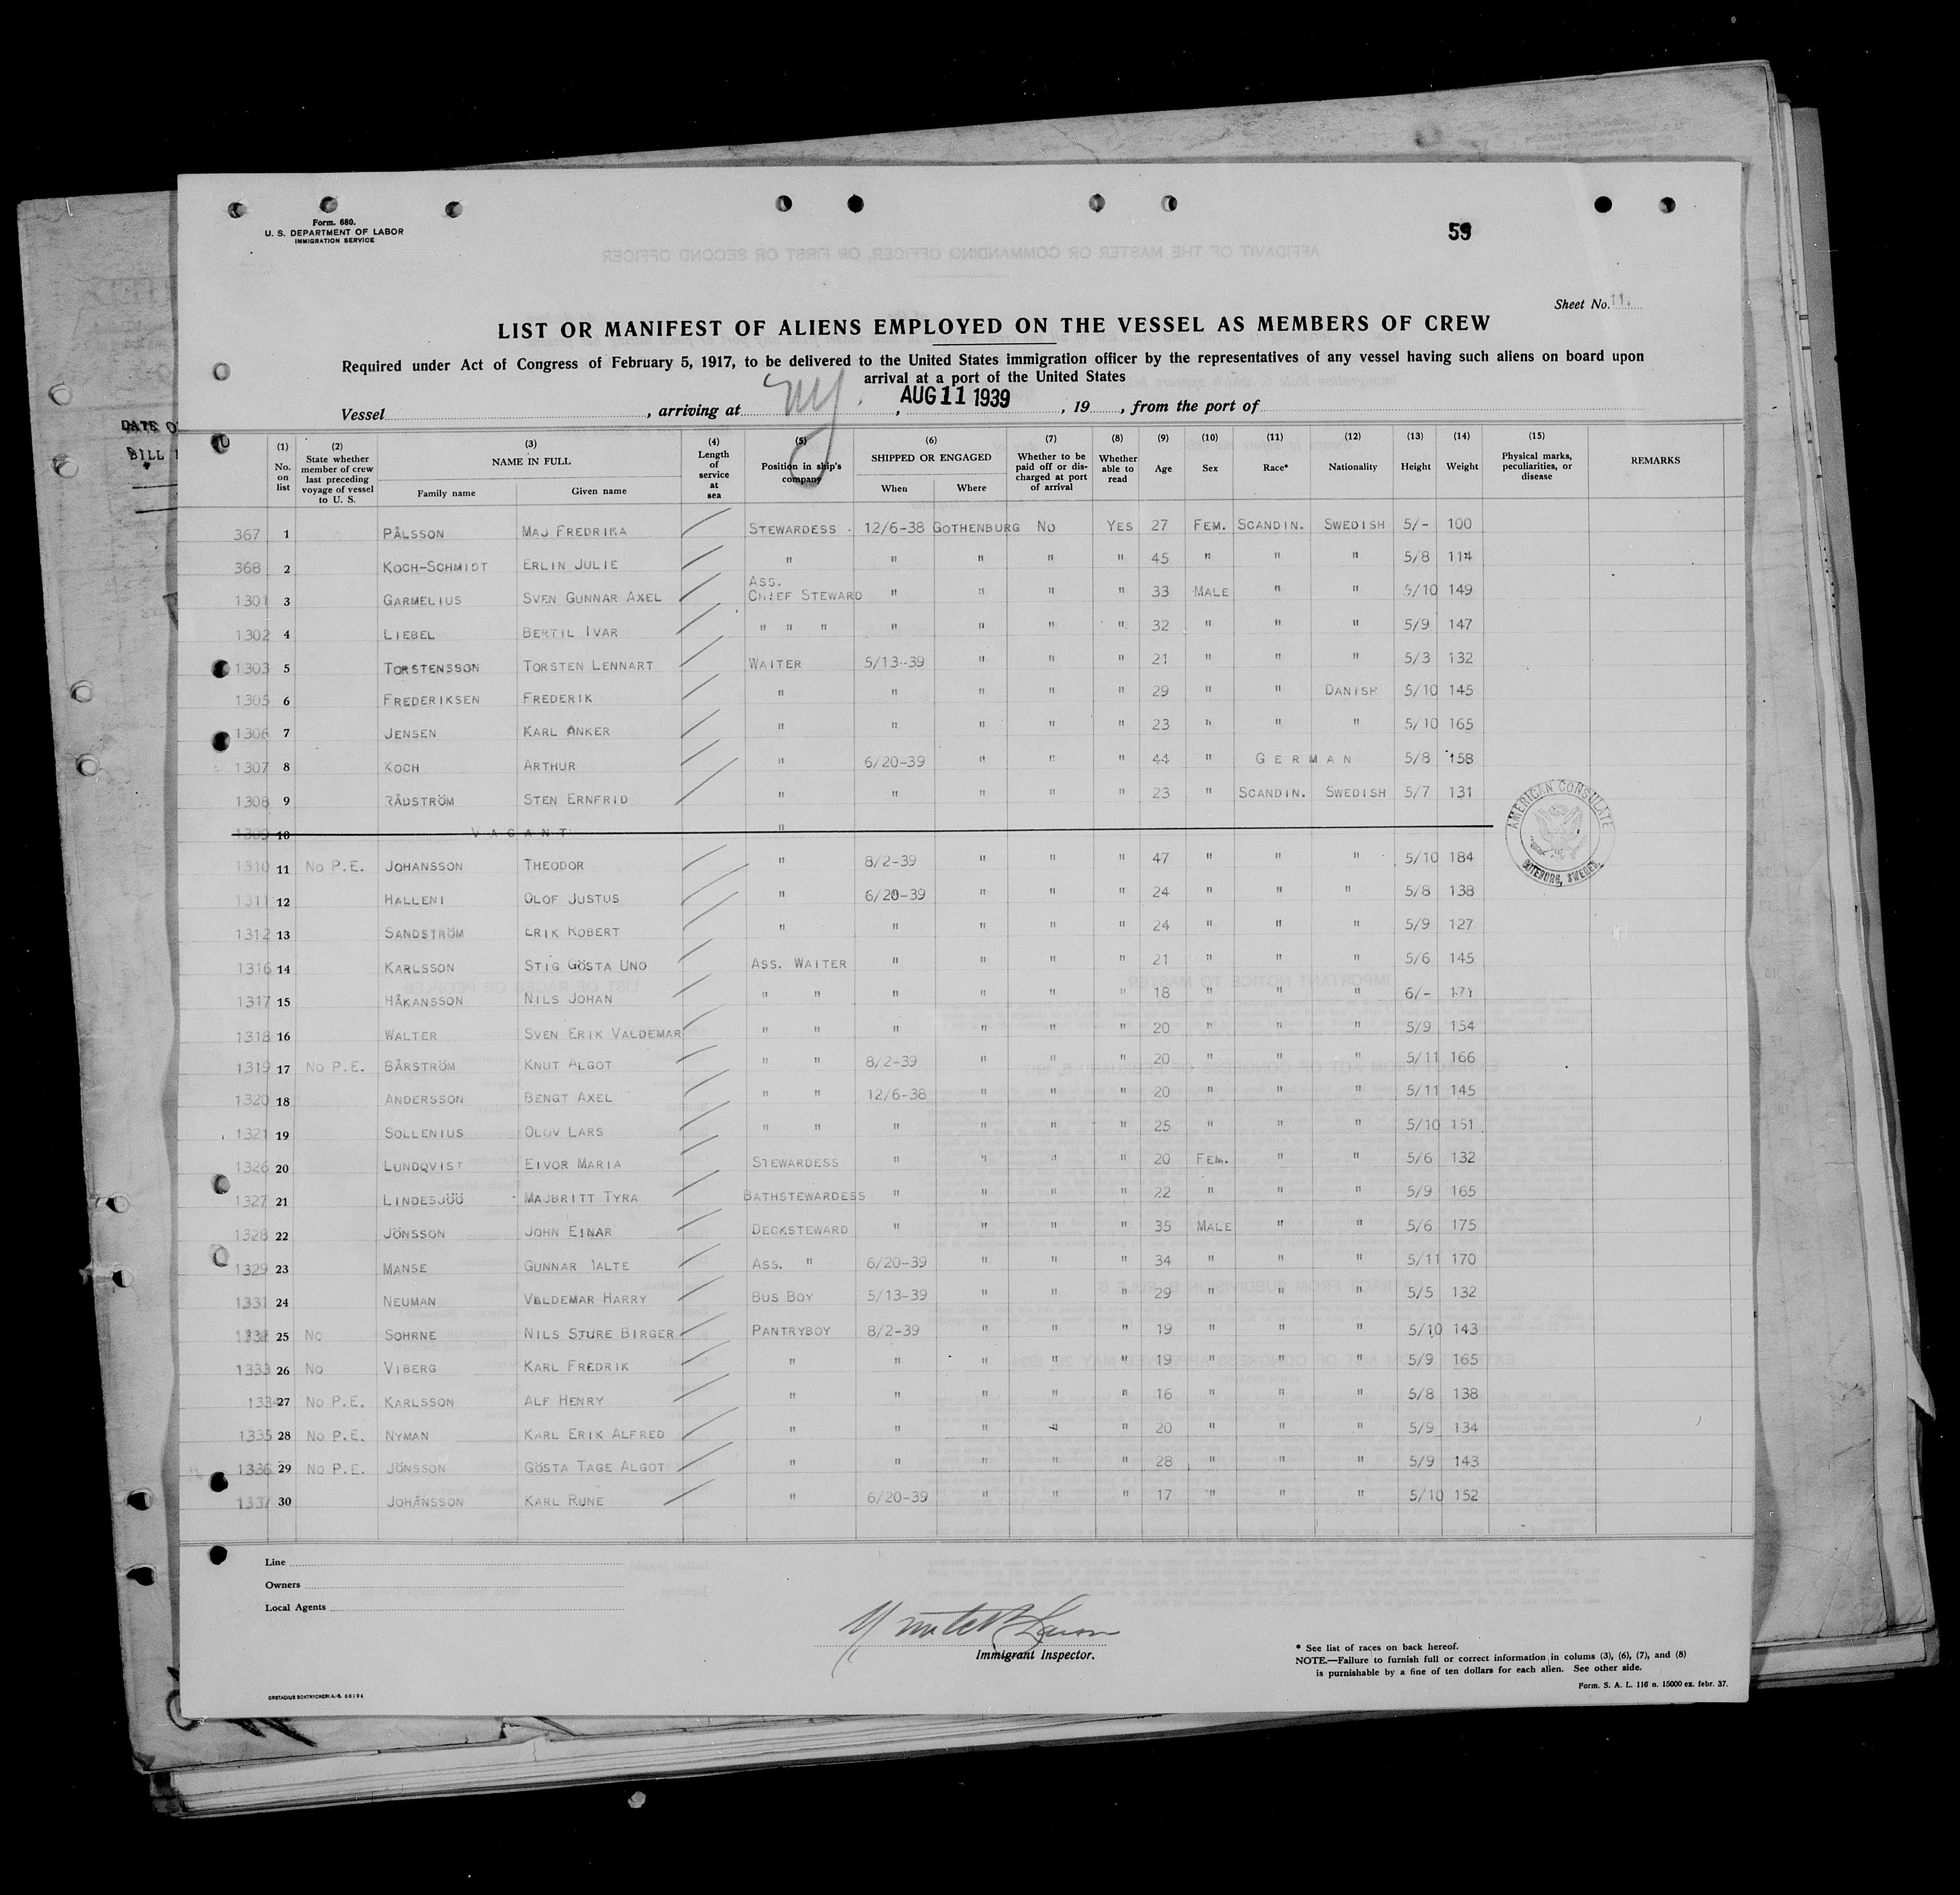 Form. 680.
U. S. DEPARTMENT OF LABOR
IMMIGRATION SERVICE
59
Sheet No. 11.
LIST OR MANIFEST OF ALIENS EMPLOYED ON THE VESSEL AS MEMBERS OF CREW
Required under Act of Congress of February 5, 1917, to be delivered to the United States immigration officer by the representatives of any vessel having such aliens on board upon
arrival at a port of the United States
Vessel, arriving at NY. , AUG 11 1939 , 19 , from the port of
DATE O
BILL
(1) No. on list (2) State whether member of crew last preceding voyage of vessel to U. S. (3) NAME IN FULL Family name Given name (4) Length of service at sea (5) Position in ship's company (6) SHIPPED OR ENGAGED When Where (7) Whether to be paid off or discharged at port of arrival (8) Whether able to read (9) Age (10) Sex (11) Race* (12) Nationality (13) Height (14) Weight (15) Physical marks, peculiarities, or disease REMARKS
367 1 PÅLSSON MAJ FREDRIKA STEWARDESS 12/6-38 GOTHENBURG NO YES 27 FEM. SCANDIN. SWEDISH 5/- 100
368 2 KOCH-SCHMIDT ERLIN JULIE " " " " " 45 " " " 5/8 114
1301 3 GARMELIUS SVEN GUNNAR AXEL ASS. CHIEF STEWARD " " " " 33 MALE " " 5/10 149
1302 4 LIEBEL BERTIL IVAR " " " " " " " 32 " " " 5/9 147
1303 5 TORSTENSSON TORSTEN LENNART WAITER 5/13-39 " " " 21 " " " 5/3 132
1305 6 FREDERIKSEN FREDERIK " " " " " 29 " " DANISH 5/10 145
1306 7 JENSEN KARL ANKER " " " " " 23 " " " 5/10 165
1307 8 KOCH ARTHUR " 6/20-39 " " " 44 " GERMAN 5/8 158
1308 9 RÅDSTRÖM STEN ERNFRID " " " " " 23 " SCANDIN. SWEDISH 5/7 131
1309 10 VACANT "
1310 11 NO P.E. JOHANSSON THEODOR " 8/2-39 " " " 47 " " " 5/10 184
1311 12 HALLENI OLOF JUSTUS " 6/20-39 " " " 24 " " " 5/8 138
1312 13 SANDSTRÖM ERIK ROBERT " " " " " 24 " " " 5/9 127
1316 14 KARLSSON STIG GÖSTA UNO ASS. WAITER " " " " 21 " " " 5/6 145
1317 15 HÅKANSSON NILS JOHAN " " " " " " 18 " " " 6/- 171
1318 16 WALTER SVEN ERIK VALDEMAR " " " " " " 20 " " " 5/9 154
1319 17 NO P.E. BÅRSTRÖM KNUT ALGOT " " 8/2-39 " " " 20 " " " 5/11 166
1320 18 ANDERSSON BENGT AXEL " " 12/6-38 " " " 20 " " " 5/11 145
1321 19 SOLLENIUS OLOV LARS " " " " " " 25 " " " 5/10 151
1326 20 LUNDQVIST EIVOR MARIA STEWARDESS " " " " 20 FEM. " " 5/6 132
1327 21 LINDESJÖÖ MAJBRITT TYRA BATHSTEWARDESS " " " " 22 " " " 5/9 165
1328 22 JÖNSSON JOHN EINAR DECKSTEWARD " " " " 35 MALE " " 5/6 175
1329 23 MANSE GUNNAR ASS. " 6/20-39 " " " 34 " " " 5/11 170
1331 24 NEUMAN VALDEMAR HARRY BUS BOY 5/13-39 " " " 29 " " " 5/5 132
1332 25 NO SOHRNE NILS STURE BIRGER PANTRYBOY 8/2-39 " " " 19 " " " 5/10 143
1333 26 NO VIBERG KARL FREDRIK " " " " " 19 " " " 5/9 165
1334 27 NO P.E. KARLSSON ALF HENRY " " " " " 16 " " " 5/8 138
1335 28 NO P.E. NYMAN KARL ERIK ALFRED " " " " " 20 " " " 5/9 134
1336 29 NO P.E. JÖNSSON GÖSTA TAGE ALGOT " " " " " 28 " " " 5/9 143
1337 30 JOHANSSON KARL RUNE " 6/20-39 " " " 17 " " " 5/10 152
AMERICAN CONSULATE
GOTEBORG, SWEDEN.
Line
Owners
Local Agents
Immigrant Inspector.
* See list of races on back hereof.
NOTE.—Failure to furnish full or correct information in colums (3), (6), (7), and (8)
is punishable by a fine of ten dollars for each alien. See other side.
Form. S. A. L. 116 n. 15000 ex. febr. 37.